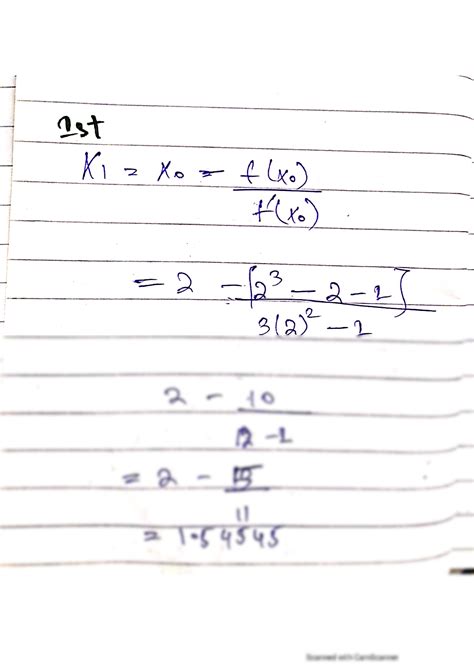 1st
x1 = x0 = f(x0)
f'(x0)
= 2 - [2³ - 2 - 1]
3(2)² - 1
2 - 10
12 - 1
= 2 -
11
= 1.54545
Scanned with CamScanner